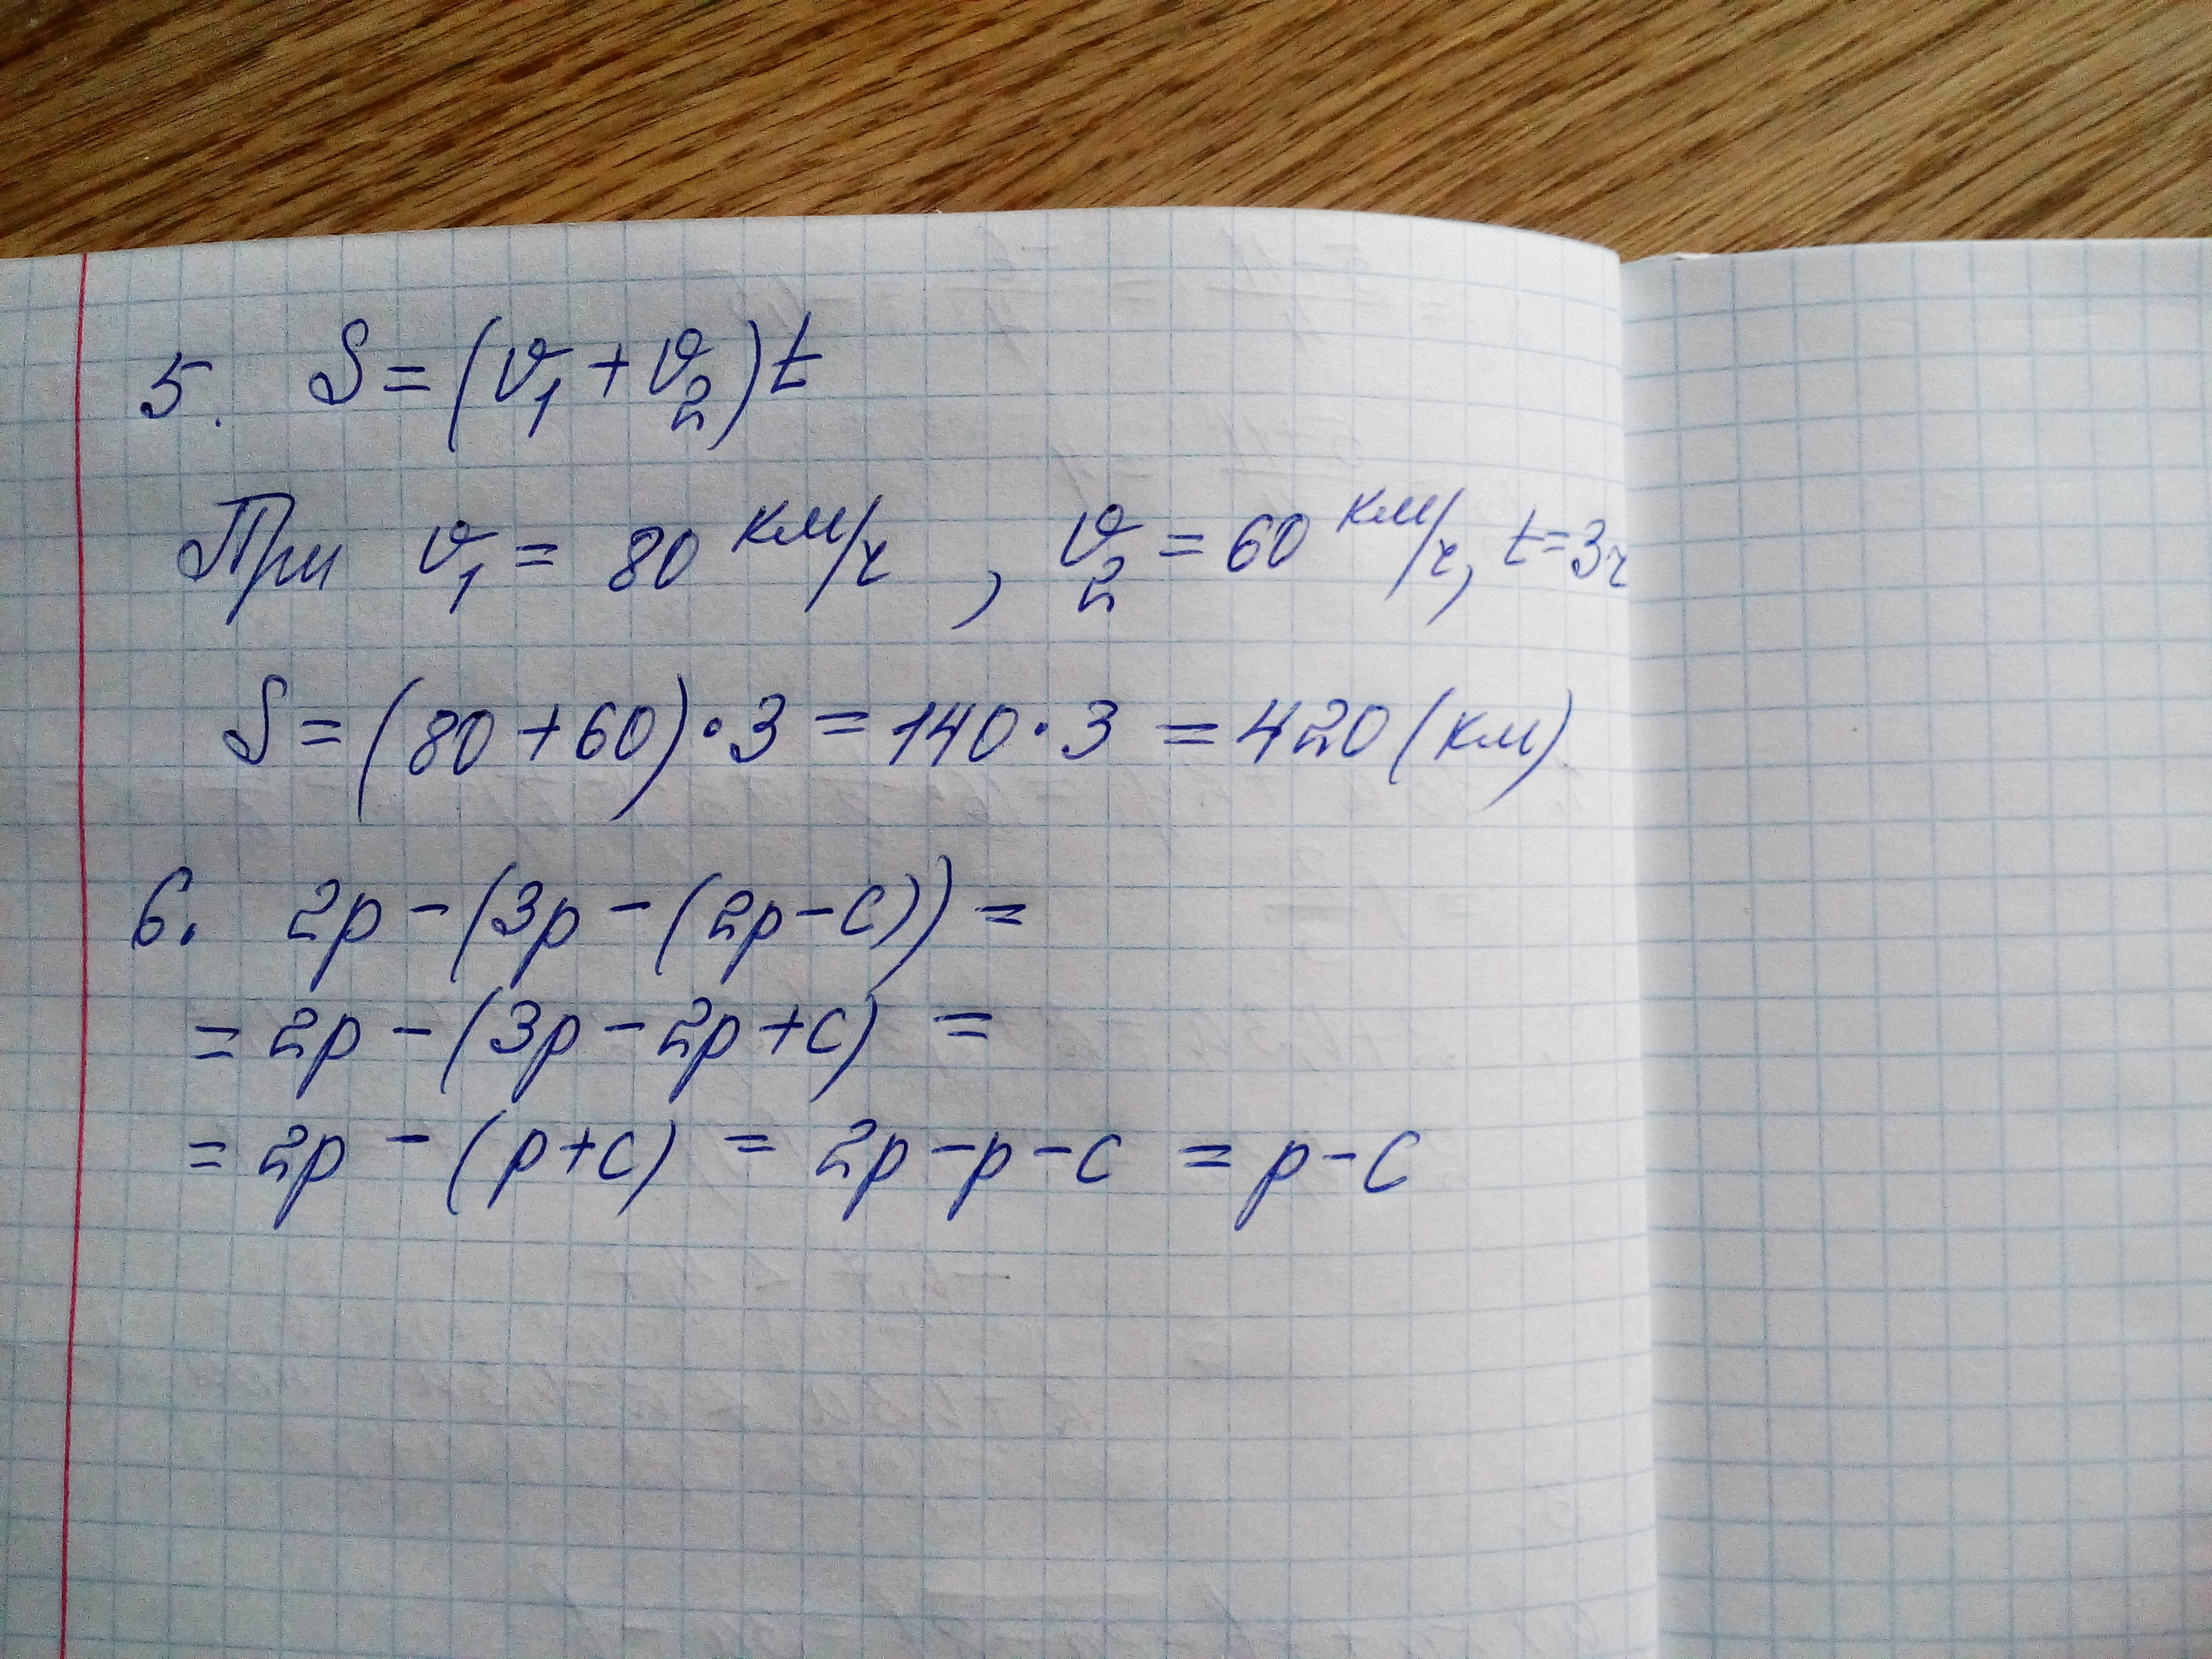 5. S = (v₁ + v₂)t
При v₁ = 80 км/ч , v₂ = 60 км/ч, t = 3ч
S = (80 + 60) · 3 = 140 · 3 = 420 (км)
6. 2p - (3p - (2p - c)) =
= 2p - (3p - 2p + c) =
= 2p - (p + c) = 2p - p - c = p - c